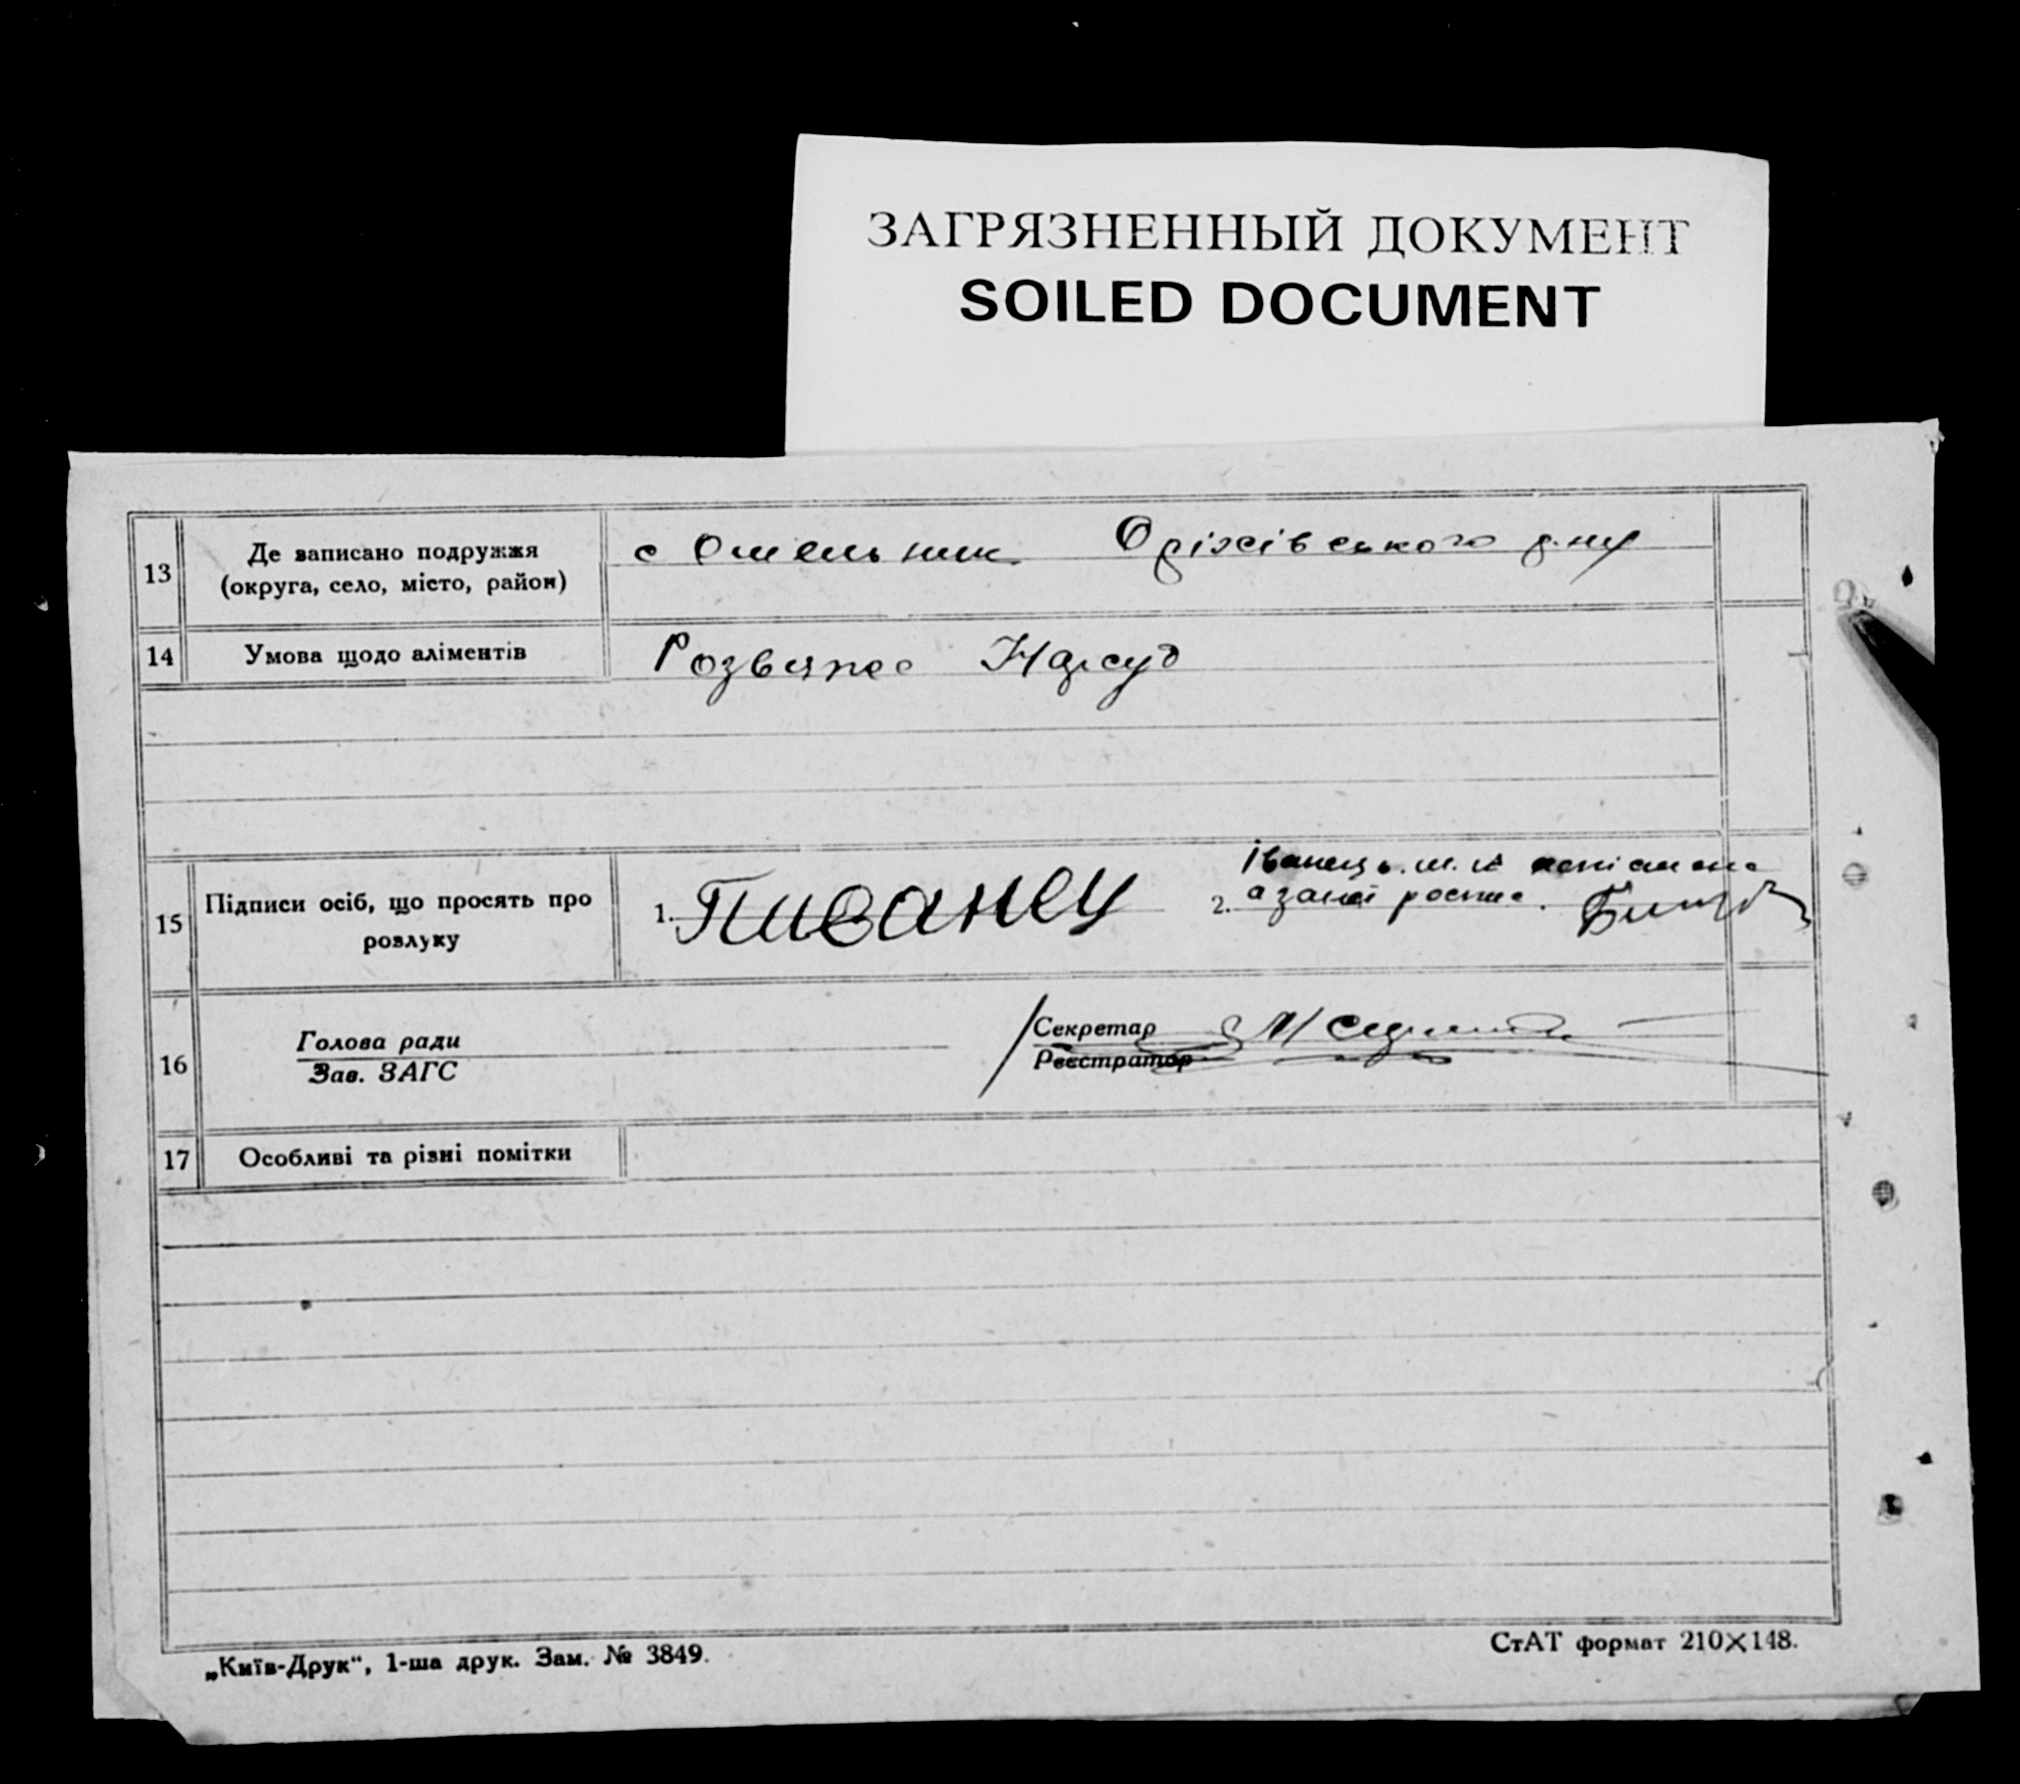 ЗАГРЯЗНЕННЫЙ ДОКУМЕНТ
SOILED DOCUMENT
13 Де записано подружжя
(округа, село, місто, район)
с Омельник Оріхівського р-ну
14 Умова щодо аліментів
Розвяже Нарсуд
15 Підписи осіб, що просять про
розлуку
1. Пиванец
2. Іванець
16 Голова ради
Зав. ЗАГС
Секретар
Реєстратор
17 Особливі та різні помітки
„Київ-Друк“, 1-ша друк. Зам. № 3849.
СтАТ формат 210×148.